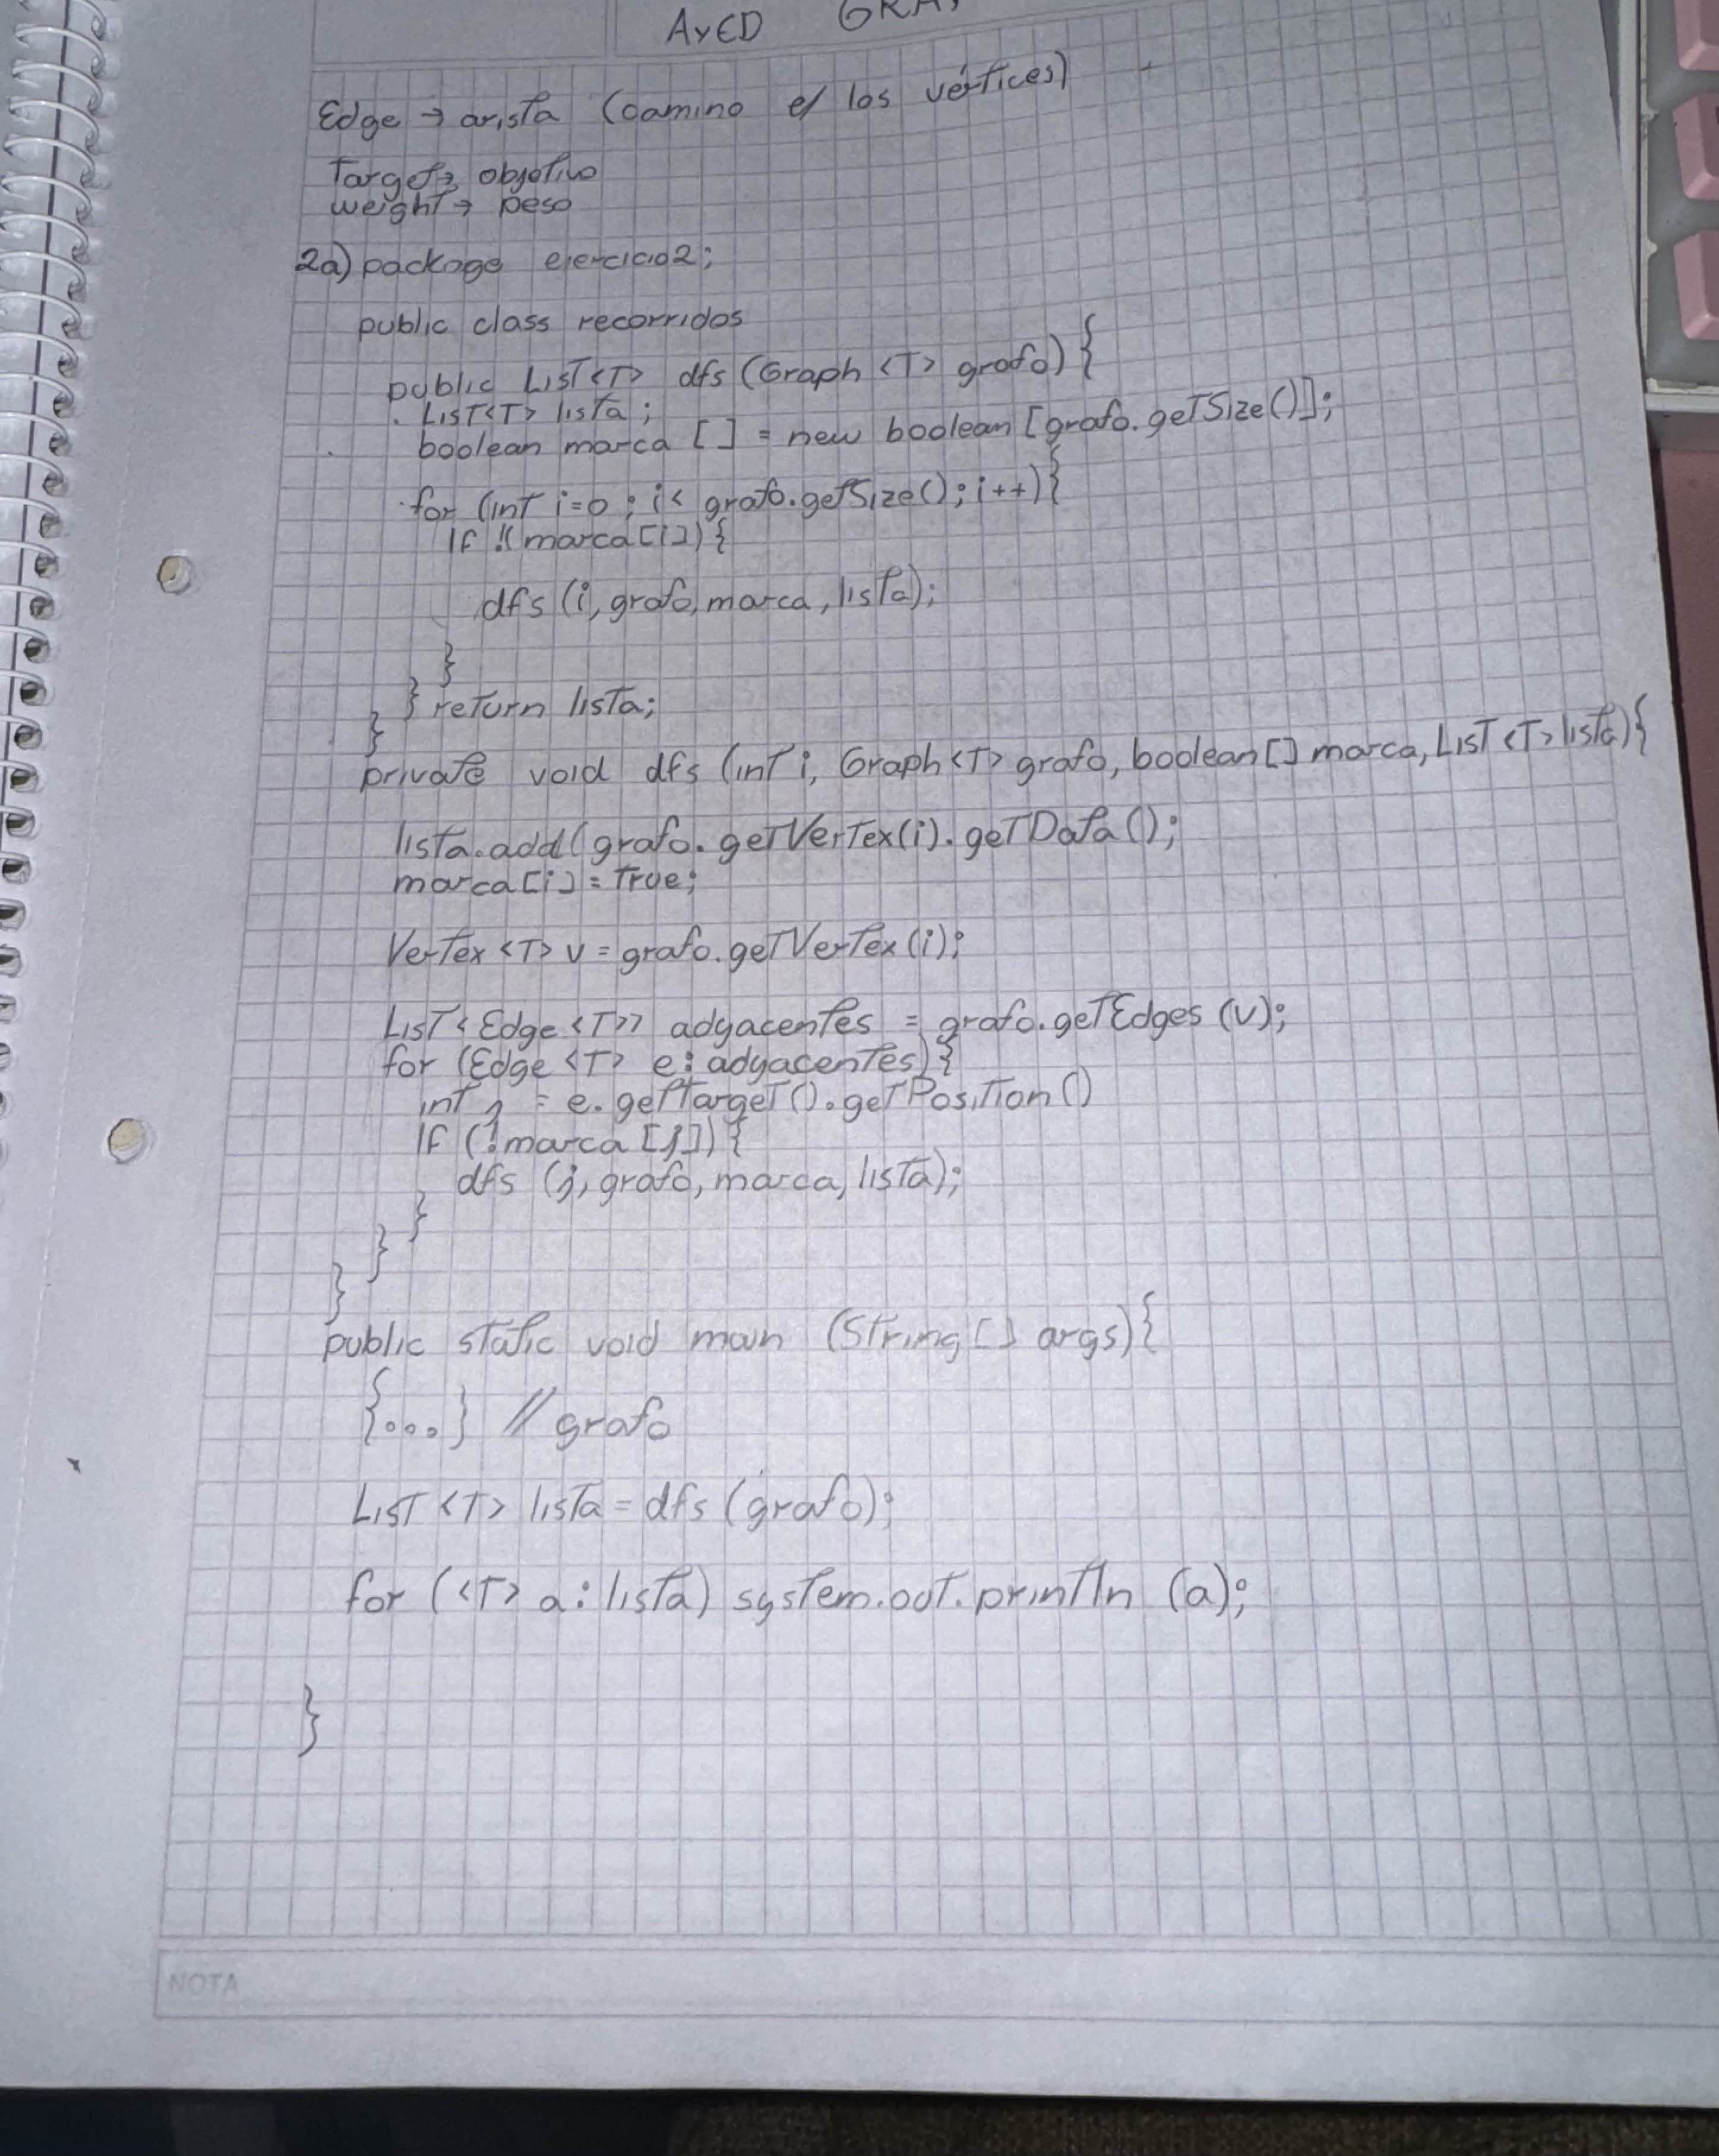 AyED GRA
Edge → arista (camino e/ los vértices)
Target → objetivo
weight → peso
2a) package ejercicio2;
public class recorridos
public List<T> dfs (Graph <T> grafo) {
List<T> lista;
boolean marca [ ] = new boolean [grafo.getSize()];
for (int i=0 ; i< grafo.getSize(); i++){
If !( marca [i]) {
dfs (i, grafo, marca, lista);
}
} return lista;
}
private void dfs (int i, Graph<T> grafo, boolean[] marca, List <T> lista){
lista.add(grafo.getVertex(i).getData();
marca [i] = true;
Vertex <T> v = grafo.getVertex (i);
List < Edge <T>> adyacentes = grafo.getEdges (v);
for (Edge <T> e: adyacentes) {
int j = e.getTarget().getPosition()
If (!marca [j]) {
dfs (j, grafo, marca, lista);
}
}
}
public static void main (String [] args) {
{...} // grafo
List <T> lista = dfs (grafo);
for (<T> a : lista) system.out.println (a);
}
NOTA